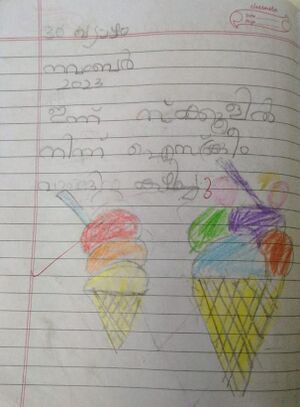 classmate
Date
Page
30 വ്യാഴം
നവംബർ
2023
ഇന്ന് സ്ക്കൂളിൽ
നിന്ന് ഐസ്ക്രീം
വാങ്ങി കഴിച്ചു